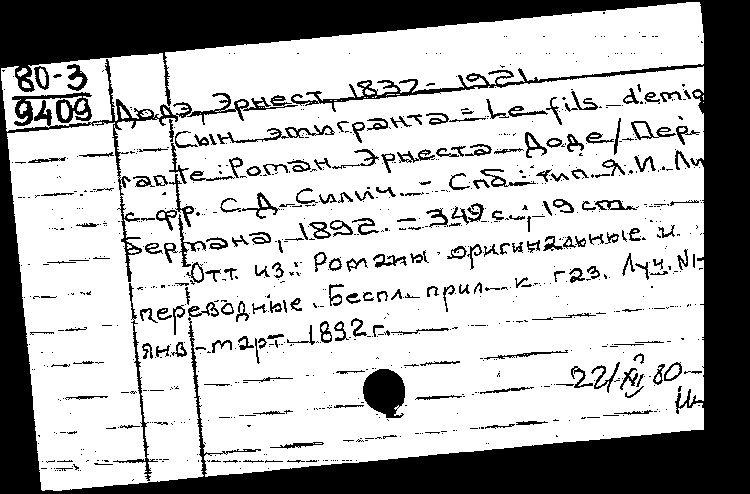 80-3
9409
Додэ, Эрнест, 1837-1921.
Сын эмигранта = Le fils d'emig
rante : Роман Эрнеста Доде / Пер.
с фр. С.Д. Силич. - Спб. : тип. Я.И. Ли
бермана, 1892. - 349 с. ; 19 см.
Отт. из.: Романы оригинальные и
переводные. Беспл. прил. к газ. Луч. №1-
янв-март. 1892 г.
22/XII 80